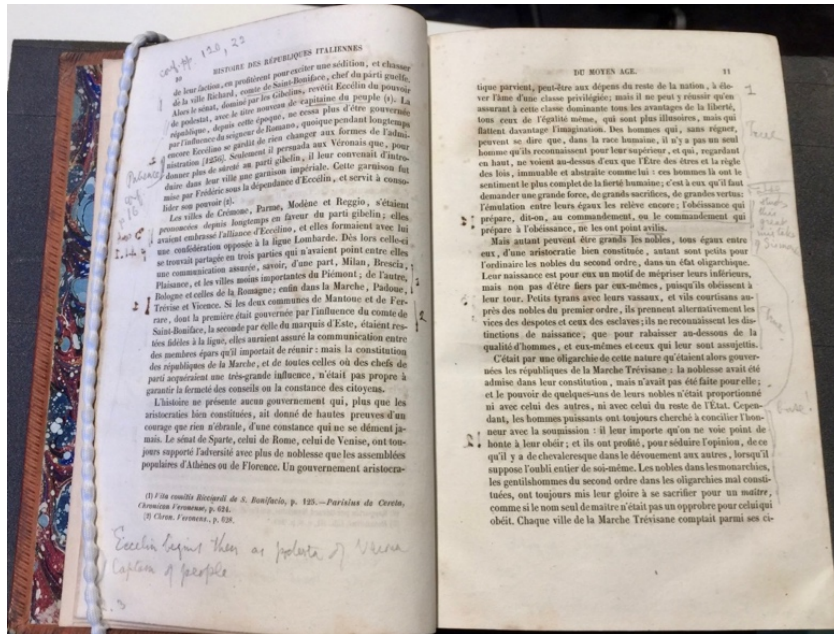 conf. pp. 120, 22
HISTOIRE DES RÉPUBLIQUES ITALIENNES
10
de leur faction, en profitèrent pour exciter une sédition, et chasser
de la ville Richard, comte de Saint-Boniface, chef du parti guelfe.
Alors le sénat, dominé par les Gibelins, revêtit Eccélin du pouvoir
de podestat, avec le titre nouveau de capitaine du peuple (1). La
république, depuis cette époque, ne cessa plus d'être gouvernée
par l'influence du seigneur de Romano, quoique pendant longtemps
encore Eccélino se gardât de rien changer aux formes de l'admi-
nistration [1236]. Seulement il persuada aux Véronais que, pour
donner plus de sûreté au parti gibelin, il leur convenait d'intro-
duire dans leur ville une garnison impériale. Cette garnison fut
mise par Frédéric sous la dépendance d'Eccélin, et servit à conso-
lider son pouvoir (2).
Les villes de Crémone, Parme, Modène et Reggio, s'étaient
prononcées depuis longtemps en faveur du parti gibelin; elles
avaient embrassé l'alliance d'Eccélino, et elles formaient avec lui
une confédération opposée à la ligue Lombarde. Dès lors celle-ci
se trouvait partagée en trois parties qui n'avaient point entre elles
une communication assurée, savoir, d'une part, Milan, Brescia,
Plaisance, et les villes moins importantes du Piémont; de l'autre,
Bologne et celles de la Romagne; enfin dans la Marche, Padoue,
Trévise et Vicence. Si les deux communes de Mantoue et de Fer-
rare, dont la première était gouvernée par l'influence du comte de
Saint-Boniface, la seconde par celle du marquis d'Este, étaient res-
tées fidèles à la ligue, elles auraient assuré la communication entre
des membres épars qu'il importait de réunir : mais la constitution
des républiques de la Marche, et de toutes celles où des chefs de
parti acquéraient une très-grande influence, n'était pas propre à
garantir la fermeté des conseils ou la constance des citoyens.
L'histoire ne présente aucun gouvernement qui, plus que les
aristocraties bien constituées, ait donné de hautes preuves d'un
courage que rien n'ébranle, d'une constance qui ne se dément ja-
mais. Le sénat de Sparte, celui de Rome, celui de Venise, ont tou-
jours supporté l'adversité avec plus de noblesse que les assemblées
populaires d'Athènes ou de Florence. Un gouvernement aristocra-
(1) Vita comitis Ricciardi de S. Bonifacio, p. 125. — Parisius de Cereta,
Chronicon Veronense, p. 624.
(2) Chron. Veronense, p. 626.
Eccelin begins then as podesta of
Captain of people
DU MOYEN AGE. 11
tique parvient, peut-être aux dépens du reste de la nation, à éle-
ver l'âme d'une classe privilégiée; mais il ne peut y réussir qu'en
assurant à cette classe dominante tous les avantages de la liberté,
tous ceux de l'égalité même, qui sont plus illusoires, mais qui
flattent davantage l'imagination. Des hommes qui, sans régner,
peuvent se dire que, dans la race humaine, il n'y a pas un seul
homme qu'ils reconnaissent pour leur supérieur, et qui, regardant
en haut, ne voient au-dessus d'eux que l'Être des êtres et la règle
des lois, immuable et abstraite comme lui : ces hommes là ont le
sentiment le plus complet de la fierté humaine; c'est à eux qu'il faut
demander une grande force, de grands sacrifices, de grandes vertus:
l'émulation entre leurs égaux les relève encore; l'obéissance qui
prépare, dit-on, au commandement, ou le commandement qui
prépare à l'obéissance, ne les ont point avilis.
Mais autant peuvent être grands les nobles, tous égaux entre
eux, d'une aristocratie bien constituée, autant sont petits pour
l'ordinaire les nobles du second ordre, dans un état oligarchique.
Leur naissance est pour eux un motif de mépriser leurs inférieurs,
mais non pas d'être fiers par eux-mêmes, puisqu'ils obéissent à
leur tour. Petits tyrans avec leurs vassaux, et vils courtisans au-
près des nobles du premier ordre, ils prennent alternativement les
vices des despotes et ceux des esclaves; ils ne reconnaissent les dis-
tinctions de naissance, que pour rabaisser au-dessous de la
qualité d'hommes, et eux-mêmes et ceux qui leur sont assujettis.
C'était par une oligarchie de cette nature qu'étaient alors gouver-
nées les républiques de la Marche Trévisane : la noblesse avait été
admise dans leur constitution, mais n'avait pas été faite pour elle;
et le pouvoir de quelques-uns de leurs nobles n'était proportionné
ni avec celui des autres, ni avec celui du reste de l'État. Cepen-
dant, les hommes puissants ont toujours cherché à concilier l'hon-
neur avec la soumission : il leur importe qu'on ne voie point de
honte à leur obéir; et ils ont profité, pour séduire l'opinion, de ce
qu'il y a de chevaleresque dans le dévouement aux autres, lorsqu'il
suppose l'oubli entier de soi-même. Les nobles dans les monarchies,
les gentilshommes du second ordre dans les oligarchies mal consti-
tuées, ont toujours mis leur gloire à se sacrifier pour un maître,
comme si le nom seul de maître n'était pas un opprobre pour celui qui
obéit. Chaque ville de la Marche Trévisane comptait parmi ses ci-